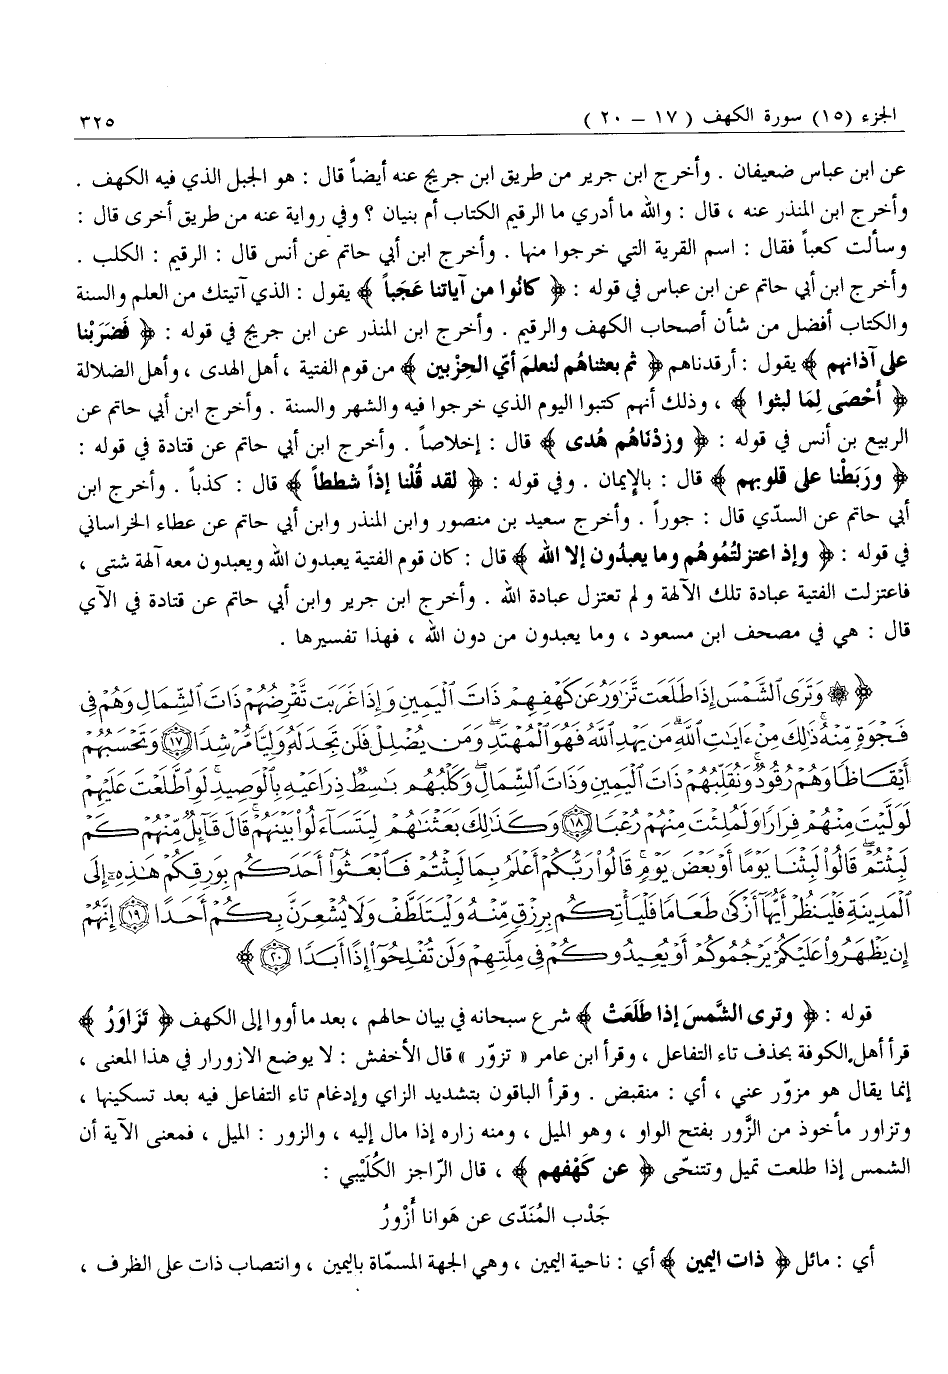 الجزء (١٥) سورة الكهف ( ١٧ – ٢٠ ) ٣٢٥
عن ابن عباس ضعيفان . وأخرج ابن جرير من طريق ابن جريج عنه أيضاً قال : هو الجبل الذي فيه الكهف .
وأخرج ابن المنذر عنه ، قال : والله ما أدري ما الرقيم الكتاب أم بنيان ؟ وفي رواية عنه من طريق أخرى قال :
وسألت كعباً فقال : اسم القرية التي خرجوا منها . وأخرج ابن أبي حاتم عن أنس قال : الرقيم : الكلب .
وأخرج ابن أبي حاتم عن ابن عباس في قوله : ﴿ كانُوا من آياتنا عَجَباً ﴾ يقول : الذي آتيتك من العلم والسنة
والكتاب أفضل من شأن أصحاب الكهف والرقيم . وأخرج ابن المنذر عن ابن جريج في قوله : ﴿ فَضَرَبْنا
على آذانهم ﴾ يقول : أرقدناهم ﴿ ثم بعثناهُم لنعلمَ أيّ الحِزْبين ﴾ من قوم الفتية ، أهل الهدى ، وأهل الضلالة
﴿ أَحْصَى لِمَا لبثوا ﴾ ، وذلك أنهم كتبوا اليوم الذي خرجوا فيه والشهر والسنة . وأخرج ابن أبي حاتم عن
الربيع بن أنس في قوله : ﴿ وزدْنَاهُم هُدى ﴾ قال : إخلاصاً . وأخرج ابن أبي حاتم عن قتادة في قوله :
﴿ ورَبَطْنا على قلوبهم ﴾ قال : بالإيمان . وفي قوله : ﴿ لقد قُلْنا إذاً شططاً ﴾ قال : كذباً . وأخرج ابن
أبي حاتم عن السدّي قال : جوراً . وأخرج سعيد بن منصور وابن المنذر وابن أبي حاتم عن عطاء الخراساني
في قوله : ﴿ وإذ اعتزلتُمُوهُم وما يعبدُون إلا الله ﴾ قال : كان قوم الفتية يعبدون الله ويعبدون معه آلهة شتى ،
فاعتزلت الفتية عبادة تلك الآلهة ولم تعتزل عبادة الله . وأخرج ابن جرير وابن أبي حاتم عن قتادة في الآي
قال : هي في مصحف ابن مسعود ، وما يعبدون من دون الله ، فهذا تفسيرها .
﴿ ۞ وَتَرَى ٱلشَّمْسَ إِذَا طَلَعَت تَّزَٰوَرُ عَن كَهْفِهِمْ ذَاتَ ٱلْيَمِينِ وَإِذَا غَرَبَت تَّقْرِضُهُمْ ذَاتَ ٱلشِّمَالِ وَهُمْ فِى
فَجْوَةٍ مِّنْهُ ذَٰلِكَ مِنْ ءَايَٰتِ ٱللَّهِ مَن يَهْدِ ٱللَّهُ فَهُوَ ٱلْمُهْتَدِ وَمَن يُضْلِلْ فَلَن تَجِدَ لَهُۥ وَلِيًّا مُّرْشِدًا ﴿١٧﴾ وَتَحْسَبُهُمْ
أَيْقَاظًا وَهُمْ رُقُودٌ وَنُقَلِّبُهُمْ ذَاتَ ٱلْيَمِينِ وَذَاتَ ٱلشِّمَالِ وَكَلْبُهُم بَٰسِطٌ ذِرَاعَيْهِ بِٱلْوَصِيدِ لَوِ ٱطَّلَعْتَ عَلَيْهِمْ
لَوَلَّيْتَ مِنْهُمْ فِرَارًا وَلَمُلِئْتَ مِنْهُمْ رُعْبًا ﴿١٨﴾ وَكَذَٰلِكَ بَعَثْنَٰهُمْ لِيَتَسَآءَلُوا۟ بَيْنَهُمْ قَالَ قَآئِلٌ مِّنْهُمْ كَمْ
لَبِثْتُمْ قَالُوا۟ لَبِثْنَا يَوْمًا أَوْ بَعْضَ يَوْمٍ قَالُوا۟ رَبُّكُمْ أَعْلَمُ بِمَا لَبِثْتُمْ فَٱبْعَثُوٓا۟ أَحَدَكُم بِوَرِقِكُمْ هَٰذِهِۦٓ إِلَى
ٱلْمَدِينَةِ فَلْيَنظُرْ أَيُّهَآ أَزْكَىٰ طَعَامًا فَلْيَأْتِكُم بِرِزْقٍ مِّنْهُ وَلْيَتَلَطَّفْ وَلَا يُشْعِرَنَّ بِكُمْ أَحَدًا ﴿١٩﴾ إِنَّهُمْ
إِن يَظْهَرُوا۟ عَلَيْكُمْ يَرْجُمُوكُمْ أَوْ يُعِيدُوكُمْ فِى مِلَّتِهِمْ وَلَن تُفْلِحُوٓا۟ إِذًا أَبَدًا ﴿٢٠﴾ ﴾
قوله : ﴿ وترى الشَّمسَ إذا طَلَعَتْ ﴾ شرع سبحانه في بيان حالهم ، بعد ما أووا إلى الكهف ﴿ تَزَاوَرُ ﴾
قرأ أهل الكوفة بحذف تاء التفاعل ، وقرأ ابن عامر « تزوّر » قال الأخفش : لا يوضع الازورار في هذا المعنى ،
إنما يقال هو مزوّر عني ، أي : منقبض . وقرأ الباقون بتشديد الزاي وإدغام تاء التفاعل فيه بعد تسكينها ،
وتزاور مأخوذ من الزَّور بفتح الواو ، وهو الميل ، ومنه زاره إذا مال إليه ، والزور : الميل ، فمعنى الآية أن
الشمس إذا طلعت تميل وتتنحّى ﴿ عن كَهْفهم ﴾ ، قال الرّاجز الكُلَيْبي :
جَدْب المُنَدّى عن هَوانا أَزْورُ
أي : مائل ﴿ ذات اليمين ﴾ أي : ناحية اليمين ، وهي الجهة المسمّاة باليمين ، وانتصاب ذات على الظرف ،